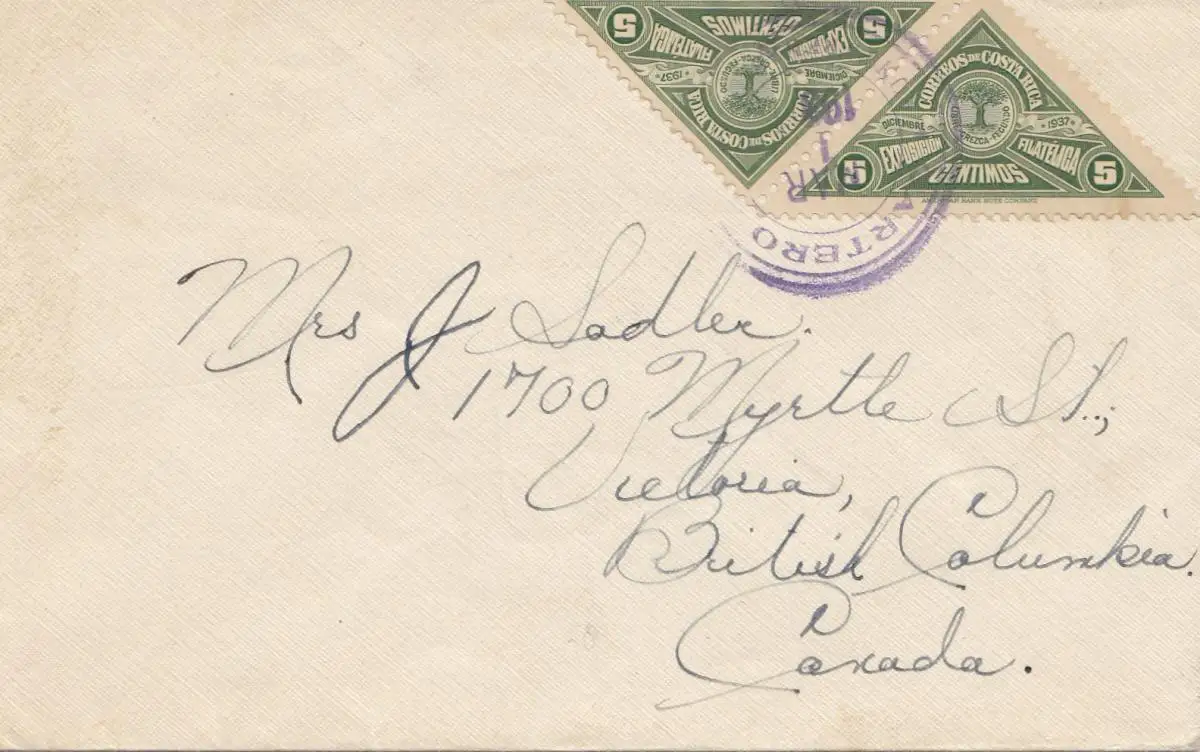 5 5
CENTIMOS
EXPOSICION FILATÉLICA
DICIEMBRE 1937
CREZCA-FECUNDO
CORREOS DE COSTA RICA
CORREOS DE COSTA RICA
DICIEMBRE 1937
CREZCA-FECUNDO
EXPOSICIÓN FILATÉLICA
5 CENTIMOS 5
AMERICAN BANK NOTE COMPANY
MAR 1
CARTERO
Mrs J Sadler.
1700 Myrtle St.,
Victoria,
British Columbia.
Canada.